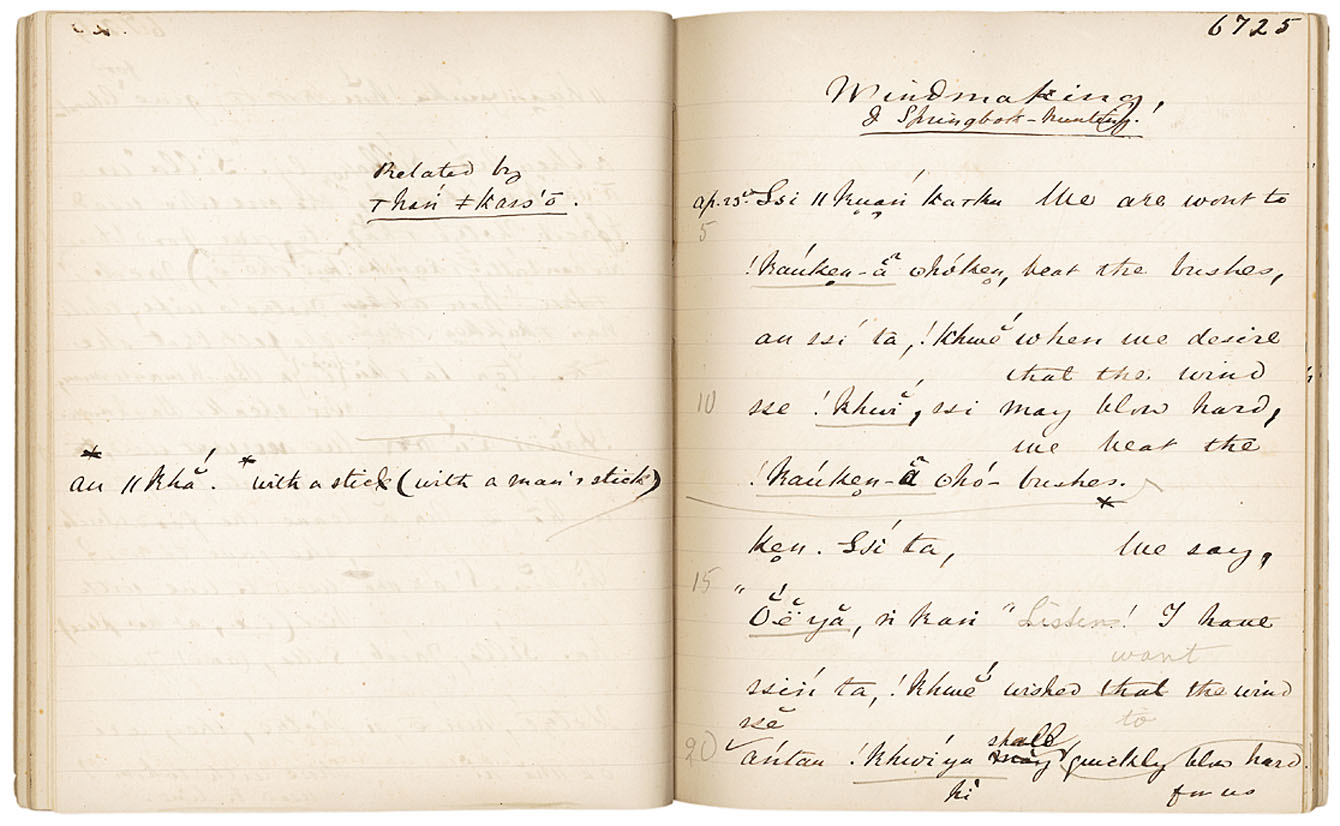 Related by
⊤han ǂkass'ō.
✶
au ǁkhā́. ✶ with a stick (with a man's stick)
6725
Windmaking,
& Springbok-hunting.
Ap. 25. Ssi ǁkuań ka⊤ku We are wont to
5
!kaúken-ā̃ ʘhóken, beat the bushes,
au ssí ta, !khwĕ́ when we desire
that the wind
10 sse !khwĭ́, ssi may blow hard,
we beat the
!kaúken-ā̃ ʘhó- bushes.
✶
ken. Ssí ta, We say,
15
"Ŏ́ĕ̈ yă, ń kan "Listen! I have
want
ssiń ta, !khwĕ́ wished that the wind
ssĕ to
20 áńtau !khwíya shall may quickly blow hard
hi for us